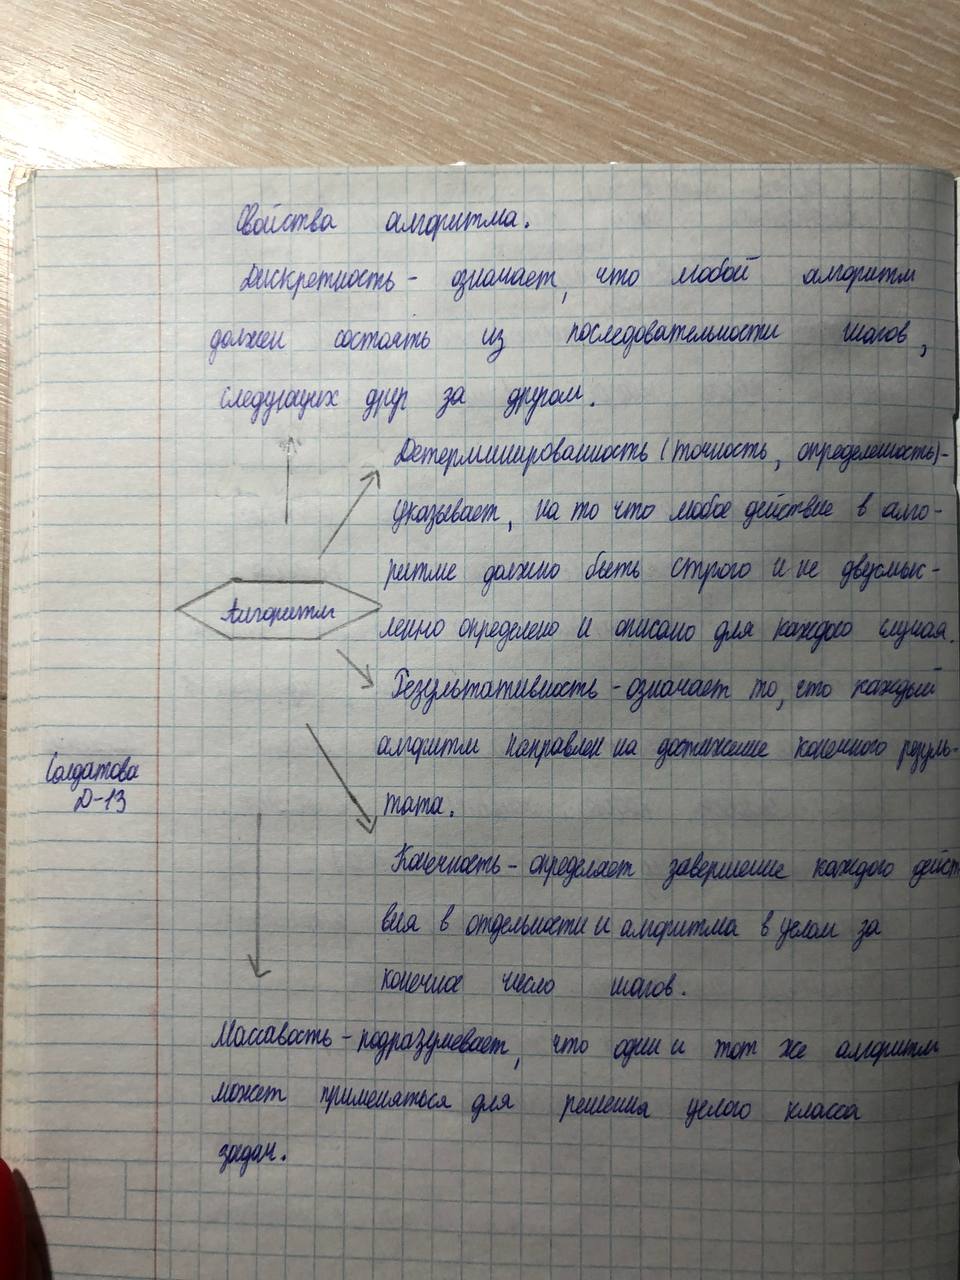 Свойства алгоритма.
Дискретность - означает, что любой алгоритм
должен состоять из последовательности шагов,
следующих друг за другом.
Детерминированность (точность, определенность)-
указывает, на то что любое действие в алго-
ритме должно быть строго и не двусмыс-
ленно определено и описано для каждого случая.
Алгоритм
Результативность - означает то, что каждый
алгоритм направлен на достижение конечного резуль-
тата.
Солдатова
Д-13
Конечность - определяет завершение каждого дейст
вия в отдельности и алгоритма в целом за
конечное число шагов.
Массавость - подразумевает, что один и тот же алгоритм
может применяться для решения целого класса
задач.